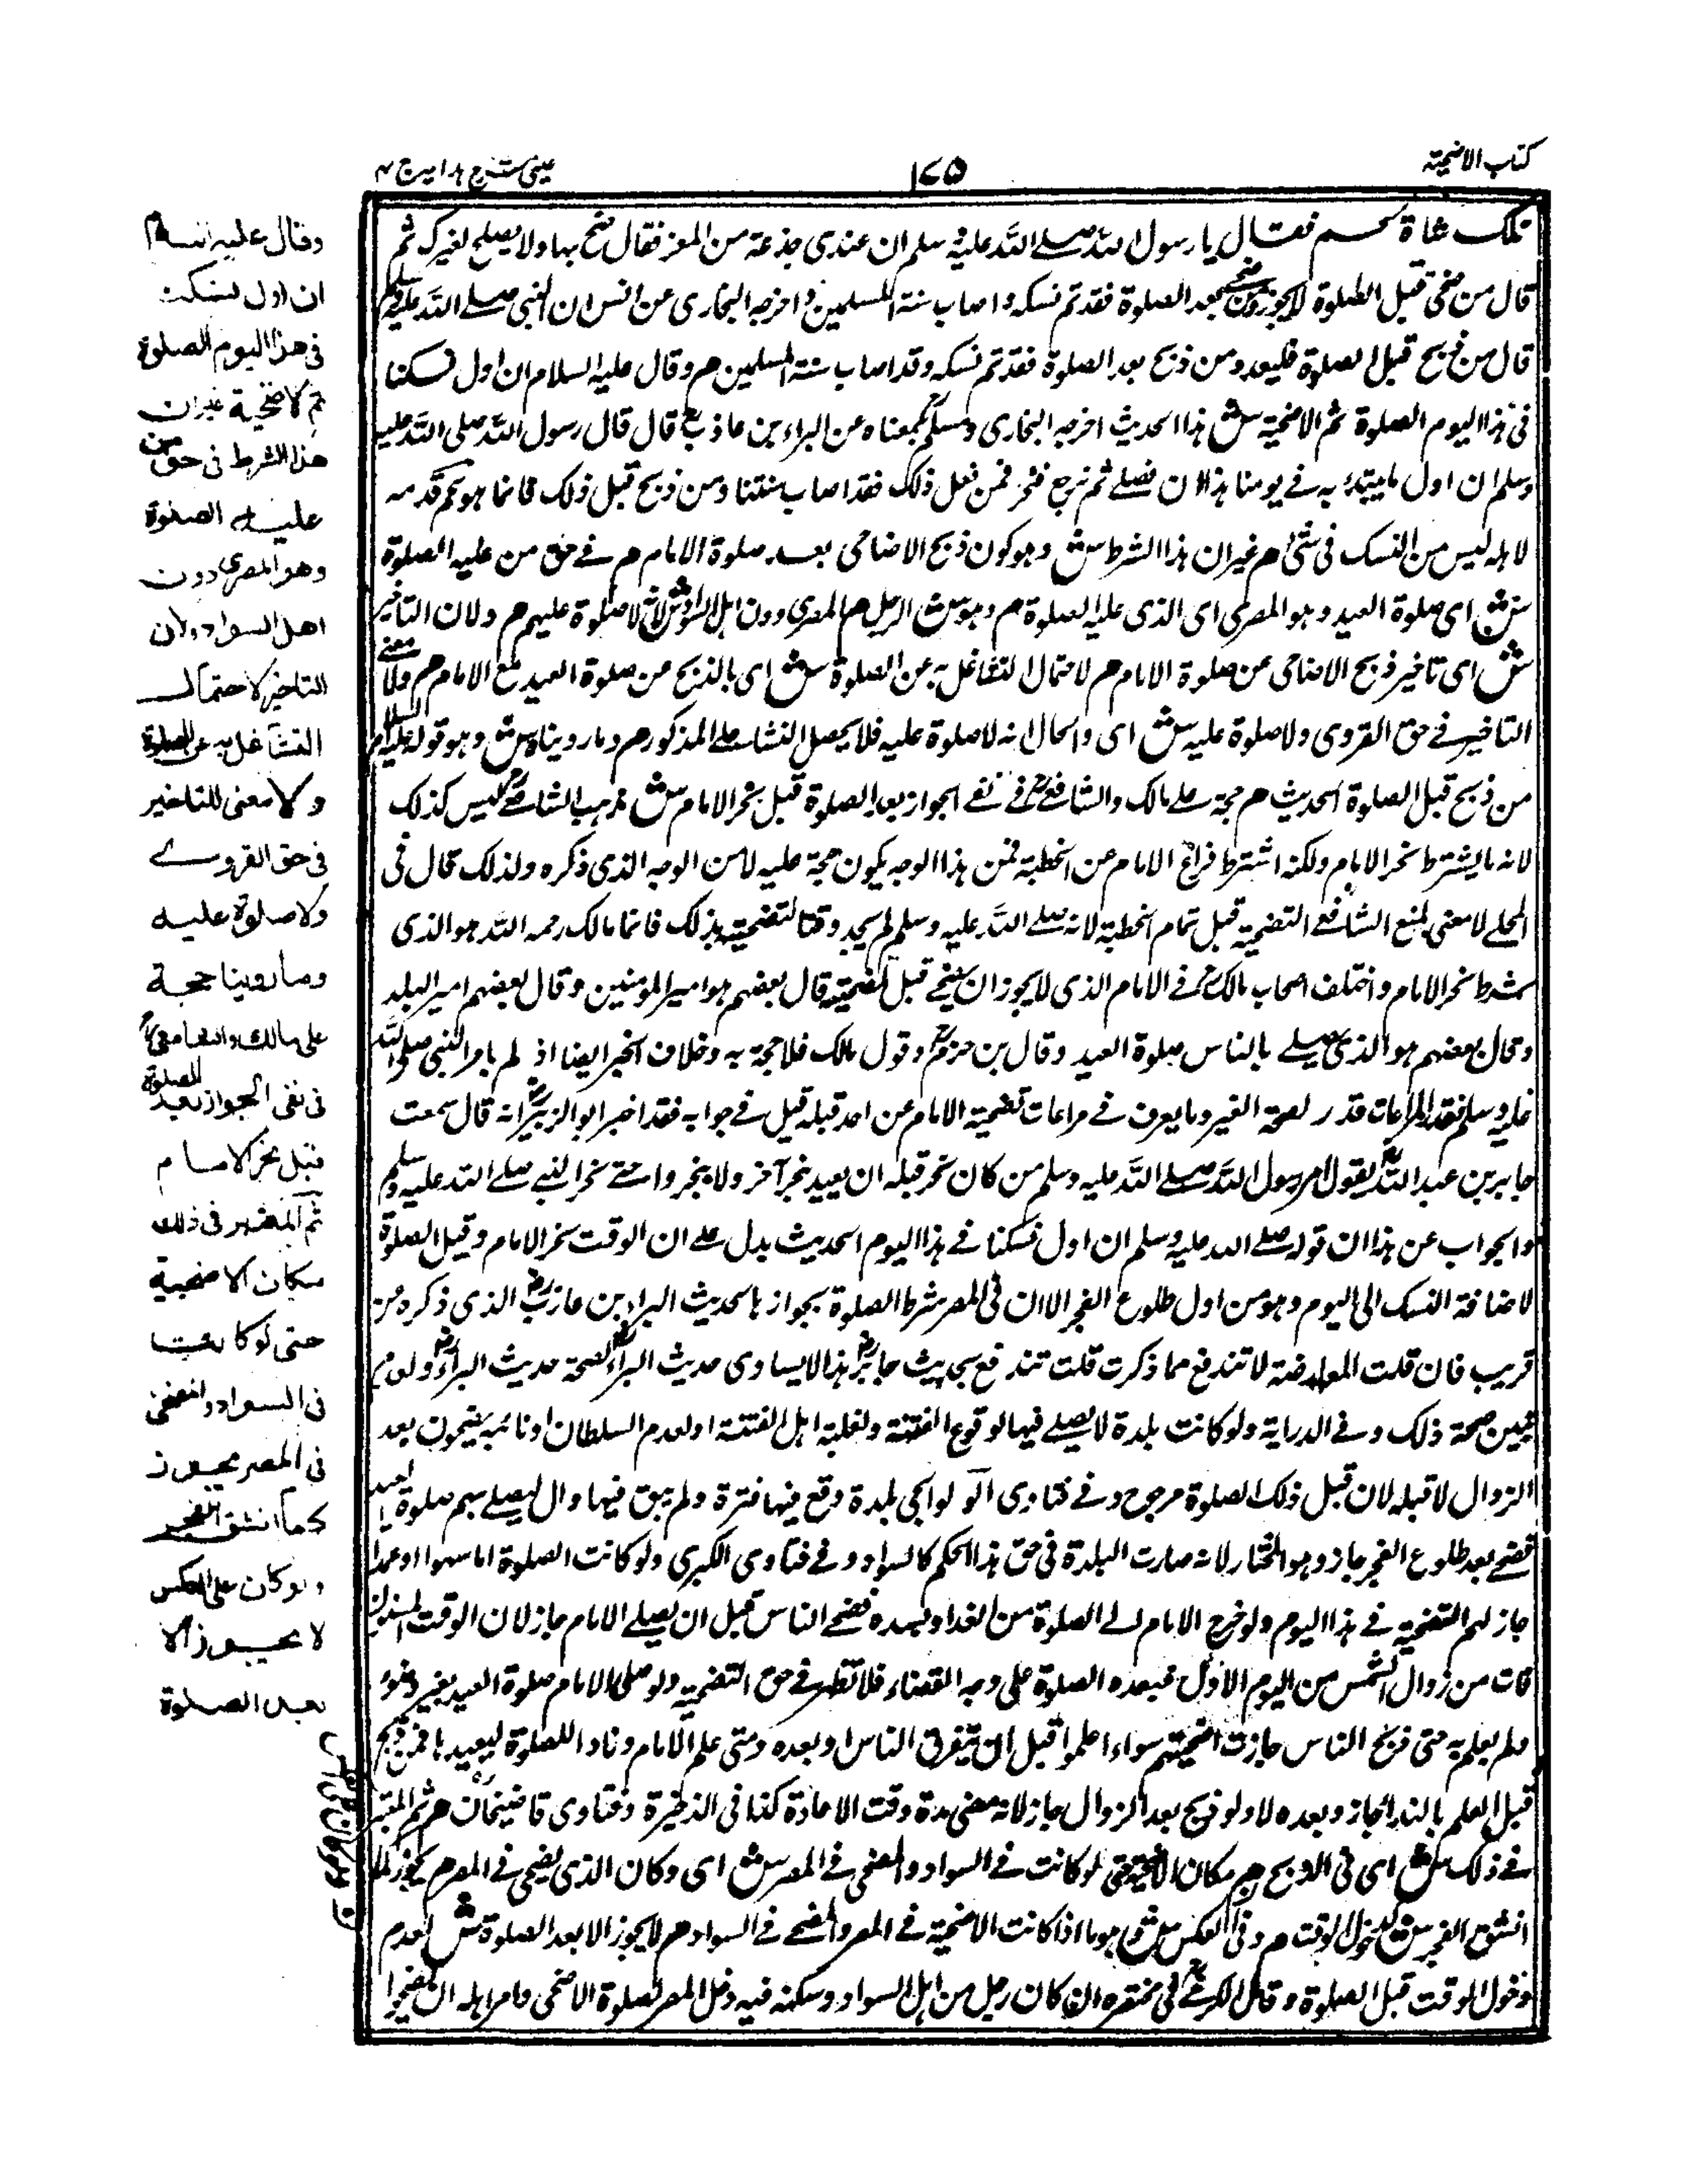 كتاب الاضحية
١٧٥
عينى شرح هداية ج ٤
تلك شاة لحم فقال يا رسول الله صلے الله عليه وسلم ان عندى جذعة من المعز فقال ضح بها ولا يصلح لغيرك ثم
قال من ضحى قبل الصلوة لا يجوز ومن ضحى بعد الصلوة فقد تم نسكه واصاب سنة المسلمين واخرجه البخارى عن انس ان النبى صلے الله عليه وسلم
قال من ذبح قبل الصلوة فليعد ومن ذبح بعد الصلوة فقد تم نسكه وقد اصاب سنة المسلمين م وقال عليه السلام ان اول نسكنا
فى هذا اليوم الصلوة ثم الاضحية ش هذا الحديث اخرجه البخارى ومسلم بمعناه عن البراء بن عاذب قال قال رسول الله صلى الله عليه
وسلم ان اول ما يبتدء به فے يومنا هذا ان نصلے ثم نرجع فننحر فمن فعل ذلك فقد اصاب سنتنا ومن ذبح قبل ذلك فانما هو لحم قدمه
لاهله ليس من النسك فى شئ م غير ان هذا الشرط ش وهو كون ذبح الاضاحى بعد صلوة الامام م فے حق من عليه الصلوة
ش اى صلوة العيد وهو المصرى اى الذى عليه الصلوة م وهو ش الرجل م المصرى دون اهل السواد ش لانه لا صلوة عليهم م ولان التاخير
ش اى تاخير ذبح الاضاحى عن صلوة الامام م لاحتمال التشاغل به عن الصلوة ش اى بالذبح عن صلوة العيد مع الامام م ولا معنے
التاخير فے حق القروى ولا صلوة عليه ش اى والحال انه لا صلوة عليه فلا يحصل التشاغل المذكور م وما رويناه ش وهو قوله عليه السلام
من ذبح قبل الصلوة الحديث م حجة علے مالك والشافعے فے نفے الجواز بعد الصلوة قبل نحر الامام ش مذهب الشافعے ليس كذلك
لانه ما يشترط نحر الامام ولكنه اشترط فراغ الامام عن الخطبة فمن هذا الوجه يكون حجة عليه لا من الوجه الذى ذكره ولذلك قال فى
المحلے لا معنى لمنع الشافعے التضحية قبل تمام الخطبة لانه صلے الله عليه وسلم لم يحد وقتا لتضحيته بذلك فانما مالك رحمه الله هو الذى
شرط نحر الامام واختلف اصحاب مالك فے الامام الذى لا يجوز ان يضحے قبل تضحيته قال بعضهم هو امير المومنين وقال بعضهم امير البلد
وقال بعضهم هو الذى يصلے بالناس صلوة العيد وقال بن حزم وقول مالك فلا حجة به وخلاف الخبر ايضا اذ لم يامر النبى صلى الله
عليه وسلم فقد المراعات قدر لصحة الغير وما يعرف فے مراعات تضحية الامام عن احد قبله قيل فے جوابه فقد اخبر ابو الزبير انه قال سمعت
جابر بن عبد الله يقول امر رسول الله صلے الله عليه وسلم من كان نحر قبله ان يعيد بنحر آخر ولا ينحروا حتے نحر النبے صلے الله عليه وسلم
والجواب عن هذا ان قوله صلے الله عليه وسلم ان اول نسكنا فے هذا اليوم الحديث يدل علے ان الوقت نحر الامام وقيل الصلوة
لاضافة النسك الى اليوم وهو من اول طلوع الفجر الا ان فى المصر شرط الصلوة بجوازها لحديث البراء بن عازب الذى ذكره من
قريب فان قلت المعارضة لا تندفع مما ذكرت قلت تندفع بحديث جابر هذا لا يساوى حديث البراء لصحة حديث البراء ولم
تبين صحة ذلك وفے الدراية ولو كانت بلدة لا يصلے فيها لوقوع الفتنة ولغلبة اهل الفتنة او لعدم السلطان او نائبه يضحون بعد
الزوال لا قبله لان قبل ذلك الصلوة مرجوح وفے فتاوى الولوالجى بلدة وقع فيها فترة ولم يبق فيها وال ليصلے بهم صلوة العيد
فضحے بعد طلوع الفجر جاز وهو المختار لانه صارت البلدة فى حق هذا الحكم كالسواد وفے فتاوى الكبرى ولو كانت الصلوة اما سهوا او عمدا
جاز لهم التضحية فے هذا اليوم ولو خرج الامام الے الصلوة من الغد او بعده فضحے الناس قبل ان يصلے الامام جاز لان الوقت المسنون
فات من زوال الشمس من اليوم الاول فبعده الصلوة على وجه القضاء فلا تظهر فے حق التضحية ولو صلى الامام صلوة العيد بغير وضوء
ولم يعلم به حتى ذبح الناس جازت اضحيتهم سواء اعلموا قبل ان يتفرق الناس او بعده ومتى علم الامام ونادا للصلوة ليعيدها فمن ذبح
قبل العلم بالنداء جاز وبعده لا ولو ذبح بعد الزوال جاز لانه مضى مدة وقت الاعادة كذا فى الذخيرة وفتاوى قاضيخان م ثم المعتبر
فے ذلك ش اى فى الذبح م مكان الاضحية حتى لو كانت فے السواد والمضحى فے المصر ش اى وكان الذى يضحى فے المصر م يجوز كما
انشق الفجر ش لدخول الوقت م وفى العكس ش وهو ما اذا كانت الاضحية فے المصر والمضحے فے السواد م لا يجوز الا بعد الصلوة ش لعدم
دخول الوقت قبل الصلوة وقال الكرخے فى مختصره ان كان رجل من اهل السواد ومسكنه فيه دخل المصر لصلوة الاضحى وامر اهله ان يضحوا
وقال عليه السلام
ان اول نسكنا
فى هذا اليوم الصلوة
ثم الاضحية غير ان
هذا الشرط فى حق من
عليه الصلوة
وهو المصرى دون
اهل السواد ولان
التاخير لاحتمال
التشاغل به عن الصلوة
ولا معنى للتاخير
فى حق القروے
ولا صلوة عليه
وما روينا حجة
على مالك والشافعى
فى نفى الجواز بعد الصلوة
قبل نحر الامام
ثم المعتبر فى ذلك
مكان الاضحية
حتى لو كانت
فى السواد والمضحى
فى المصر يجوز
كما انشق الفجر
ولو كان على العكس
لا يجوز الا
بعد الصلوة